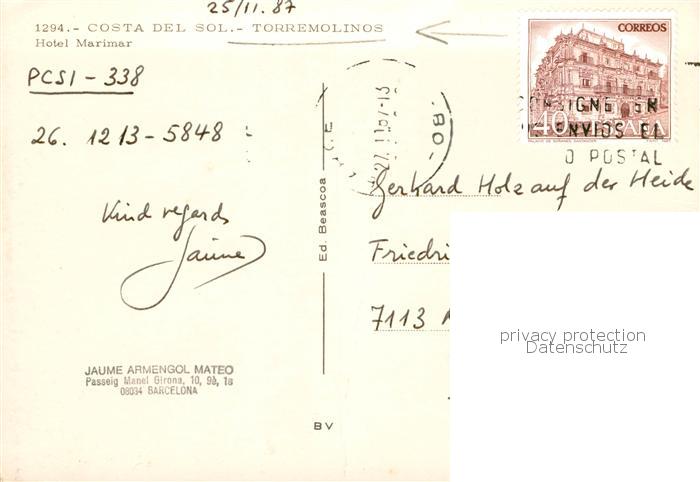 25/11.87
1294.- COSTA DEL SOL.- TORREMOLINOS
Hotel Marimar
PCSI-338
26. 1213-5848
Kind regards
Jaume
JAUME ARMENGOL MATEO
Passeig Manel Girona, 10, 9è, 1a
08034 BARCELONA
Ed. Beascoa
BV
CORREOS
40 ESPAÑA
CONSIGNE EN
ENVIOS EL
POSTAL
Gerhard Holzauf der Heide
Friedri
7113
privacy protection
Datenschutz